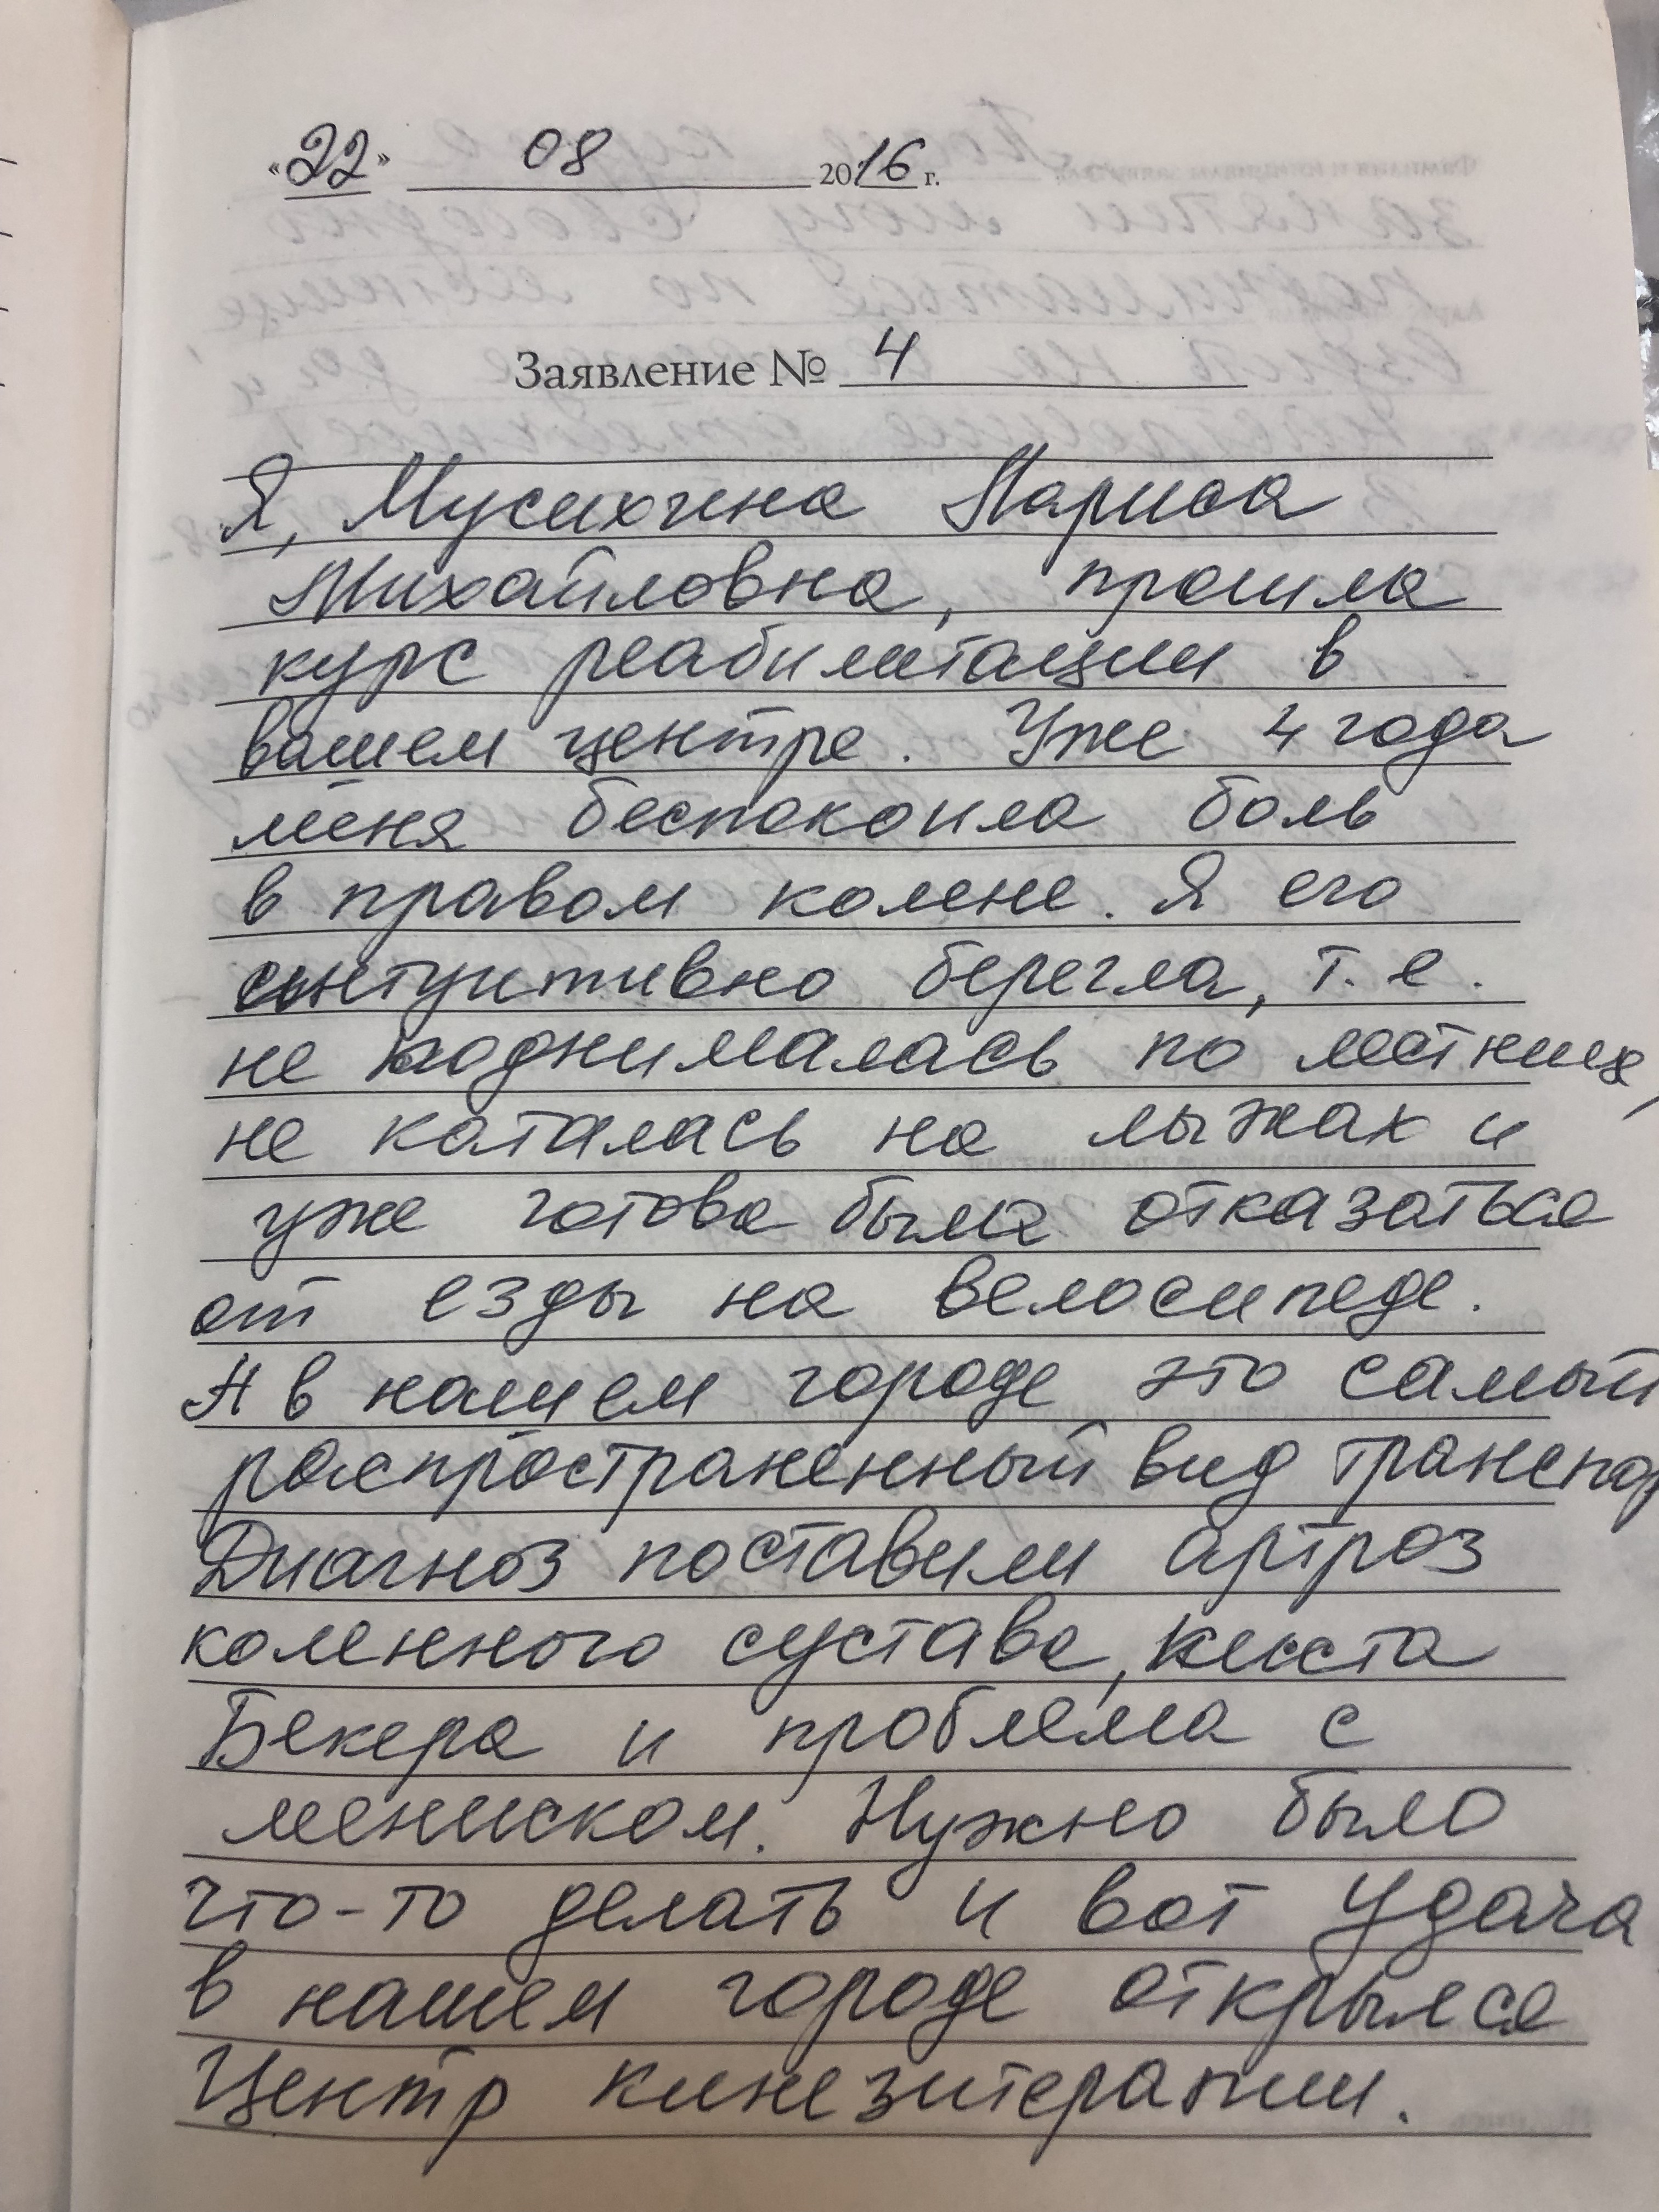 «22» 08 2016 г.
Заявление № 4
Я, Мусихина Лариса
Михайловна, прошла
курс реабилитации в
вашем центре. Уже 4 года
меня беспокоила боль
в правом колене. Я его
интуитивно берегла, т.е.
не поднималась по лестнице,
не каталась на лыжах и
уже готова была отказаться
от езды на велосипеде.
А в нашем городе это самый
распространенный вид транспор
Диагноз поставили артроз
коленного сустава, киста
Бекера и проблема с
мениском. Нужно было
что-то делать и вот удача
в нашем городе открылся
Центр кинезитерапии.